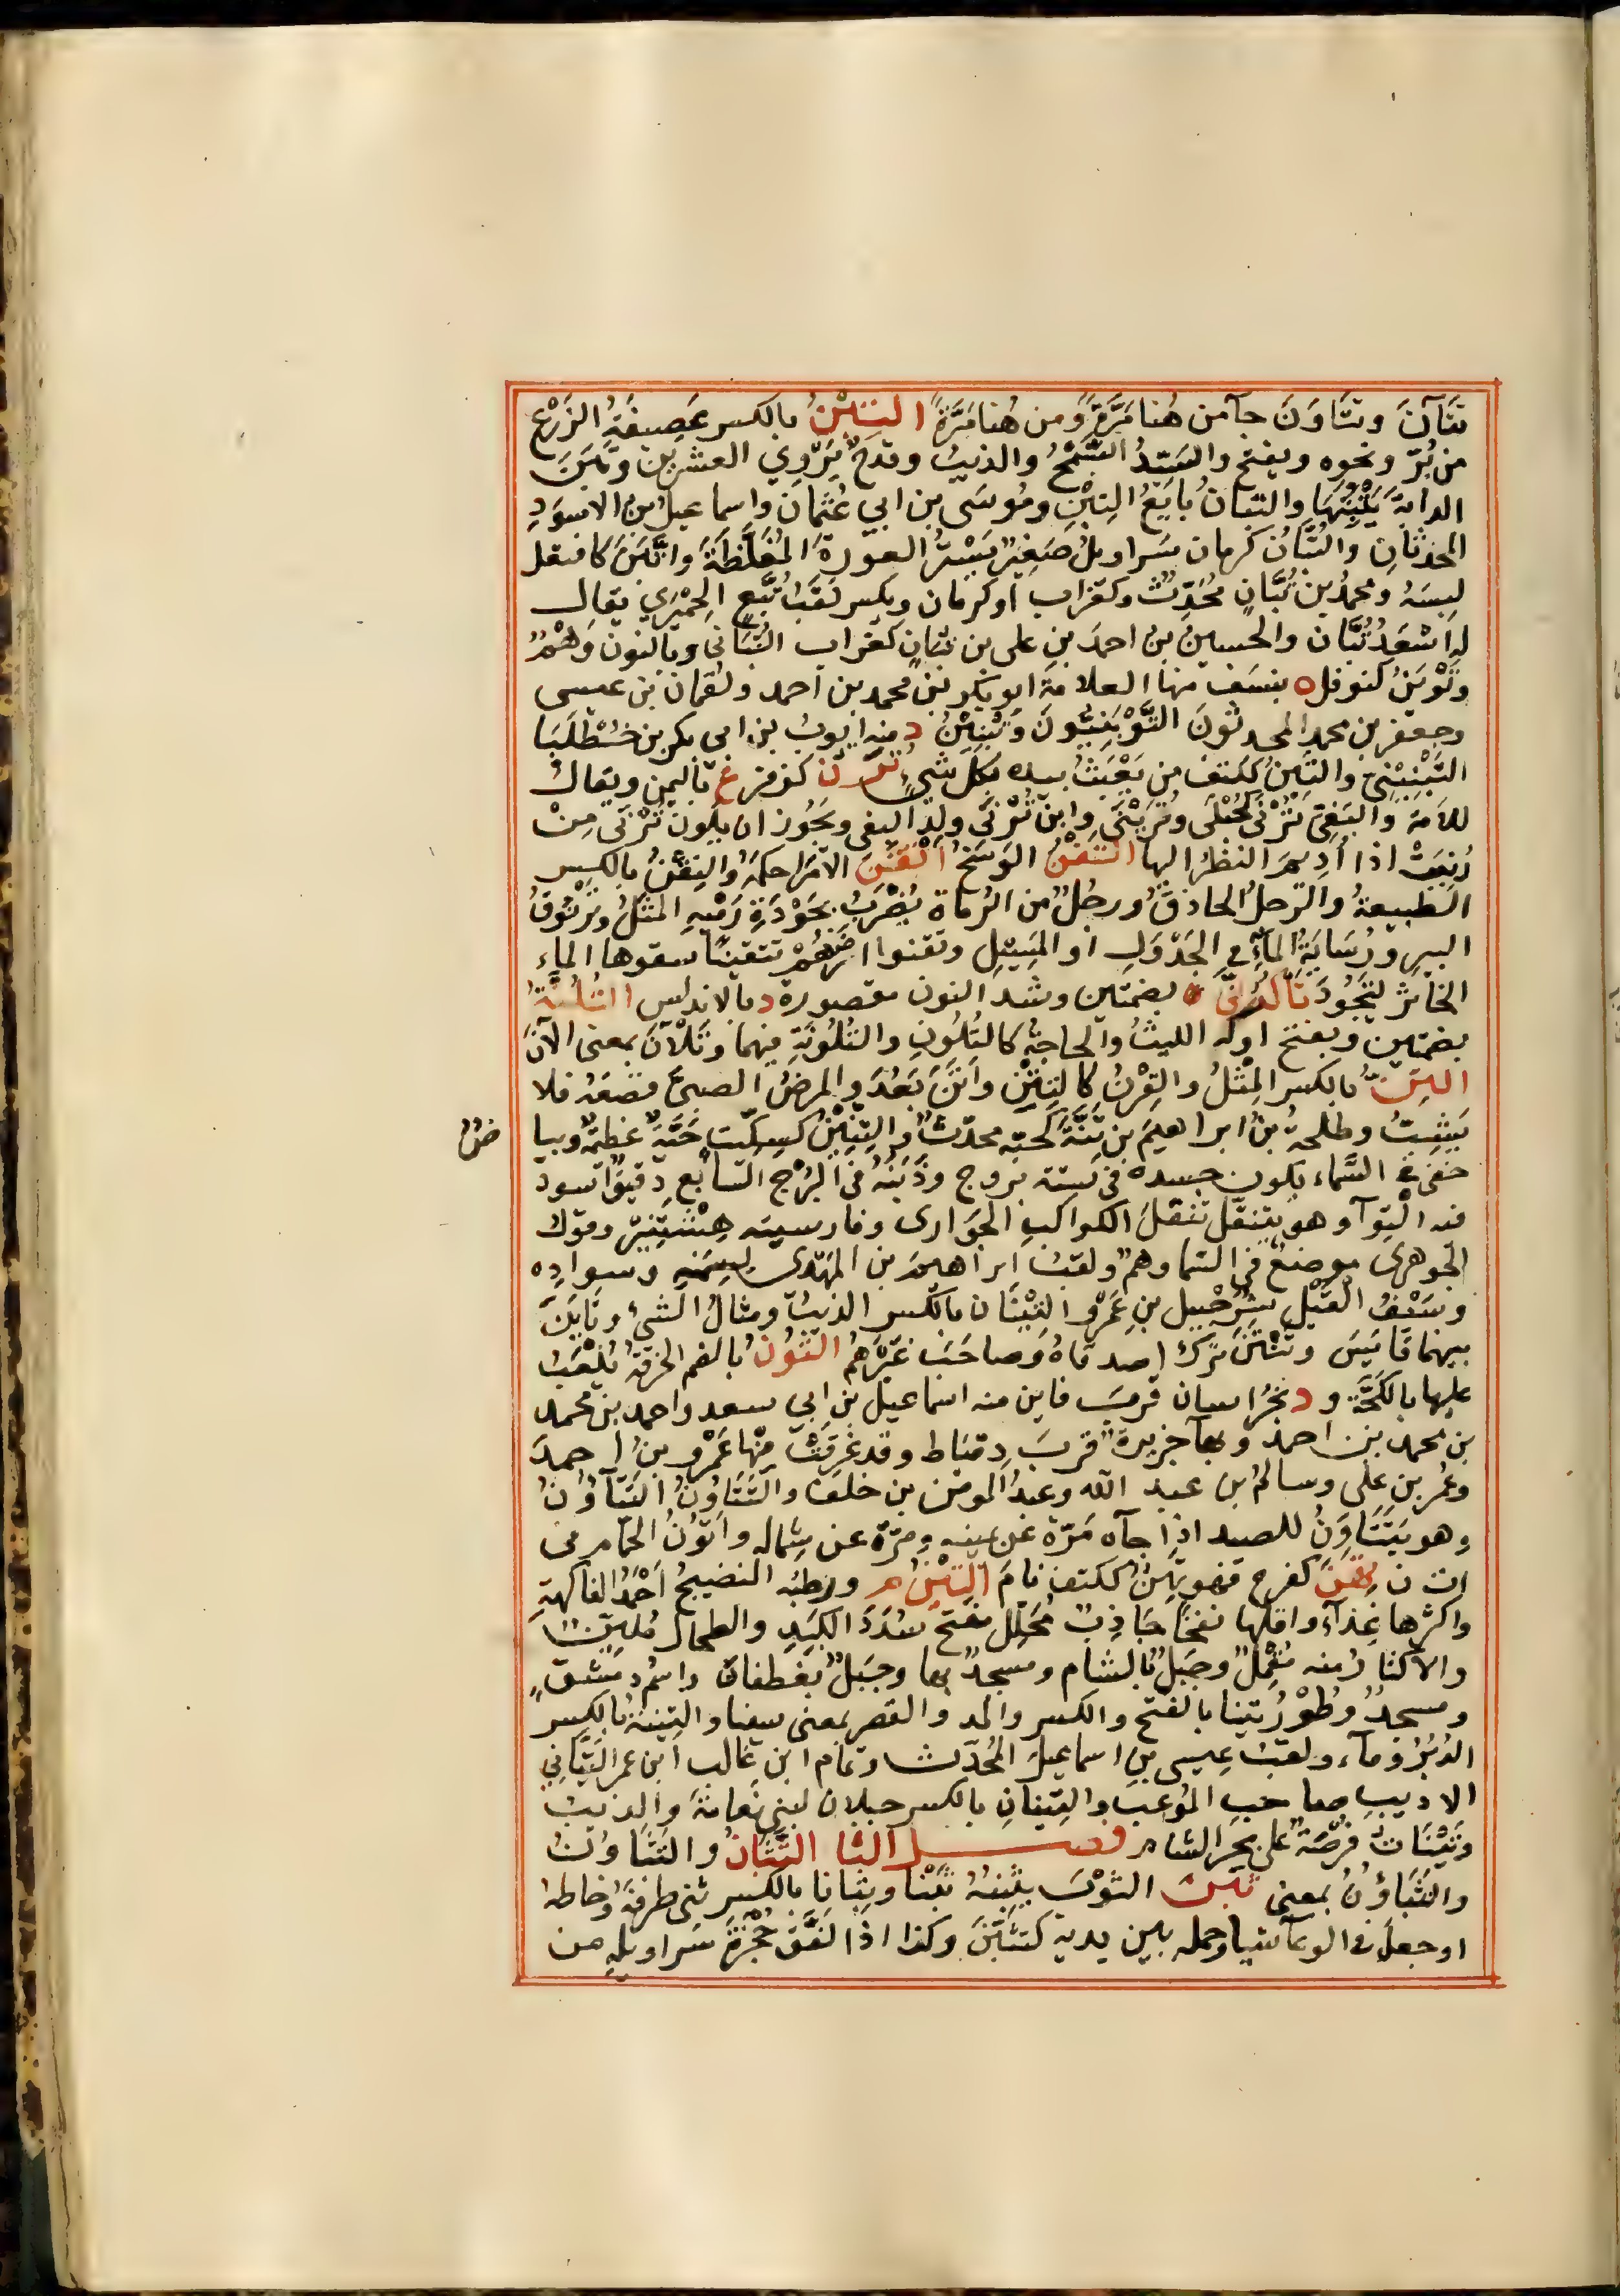 تتَآنَ وتتَاوَنَ جآ من هُنا مَرَّةً وَمن هُنا مَرَّةً التِبْنُ بالكسر عَصِيفَةُ الزَرْع
من بُرّ ونحوه ويفتح والسَيّدُ السَّمْحُ والذيبُ وقدَحٌ يَرْوِي العشرين وتَبَنَ
الدابَّةَ يَتْبِنُهَا والتبّانُ بايَعُ التِبْنِ ومُوسَى بن ابي عُثمَان واسماعيل بن الاسوَدِ
المحدّثانِ والتُبَّانُ كرمان سَراويلُ صَغِيرٌ يَسْتُرُ العورةَ المُغَلَّظَةَ واتَّبَنَ كافتعل
لبِسَهُ ومحمدُ بن تُبَّانٍ مُحَدِّثٌ وكغراب اَو كرمان ويكسر لقَبُ تُبَّعٍ الحِمْيَرِي يقال
له اسْعَدُ تُبَّان والحسين بن احمدَ بن على بن تبانٍ كغراب التُبَانى وبالنون وَهْمٌ
وتَوْبَنُ كنوفل ه بنسَف منها العلامة ابو بكر بن محمد بن احمد ولقمان بن عيسى
وجعفر بن محمد المحدثونَ التَّوْبَنِيُّونَ وَتُبنِينُ د منه ايوبُ بن ابى بكر بن خُطْلُبَا
التِّبْنِيْنِيُّ والتَبِنُ ككتف من يَعْبَثُ بيده بكل شيءٍ تُرَن كزفر ع باليمن ويقال
للامَة والبَغِيّ تُرْنَى كحُبْلَى وتُرَيْنَى وابن تُرْنَى ولد البغى ويجُوز ان يكون تُرْنَى مِنْ
رُنِيَتْ اذا اُدِيمَ النظرُ اليها التَقْنُ الوَسَخُ اتْقَنَ الاَمرَ احكمَهُ والتِقْنُ بالكسر
الطبيعةُ والرّجلُ الحاذقُ ورجُلٌ من الرُماة يُضْرَبُ بجَوْدَةِ رَمْيِهِ المثَلُ وتُرْنُوقُ
البيرِ ورُسَابَةُ المآءِ في الجَدْوَلِ او المَسِيْلِ وتقنوا ارْضَهُمْ تتقينًا سقوها الماء
الخاثرَ لتَجُودَ تَاكُرُنَّى ه بضمتين وشد النون مقصورة د بالاندلس التُلُنَّةُ
بضمتين وبفتح اوله اللبثُ والحاجَةُ كالتُلُونِ والتُلُونَةِ فيهما وتَلآنَ بمعنى الآنَ
التِنّ بالكسر المِثْلُ والقِرْنُ كالتِنِينِ واَتَنَّ بَعُدَ والمرضُ الصبيَّ قصَعَهُ فلا
يَشِبُّ وطلحةُ بن ابراهيمَ بن تَنَّةَ كحَبّة محدّث والتِنِّينُ كسِكِّيت حَيّةٌ عظيمةٌ وبيا
ض
خفى في السَّماء يكون جسده فى ستة بروج وذَنَبُهُ فى البُرْج السَّابع دقيقٌ اسود
فيه اِلْتوآ وهو يتنقّل تنقّلَ الكواكبِ الجَوَارى وفارسيته هِشْتَنْبُر وقولُ
الجوهرى موضعٌ فى السّما وهمٌ ولقبُ ابراهيمَ بن المهْدى لسِمَنِهِ وسوادِه
وسَيْفُ القَيْلِ شُرَحْبِيل بنِ عَمْرٍو والتِنِّينَان بالكسر الذيبُ ومثالُ الشيْ وتَانَّ
بينهما قَايَسَ وتَنْتَنَ ترَكَ اصدقاهُ وَصاحَبَ غَيرَهُمْ التُّونُ بالضم الخِزَفَةُ يُلْعَبُ
عليها بالكُجَّة و د بخُراسان قربَ قاين منه اسماعيل بن ابي سعد واحمد بن محمد
بن محمد بن احمدَ وبهآ جزيرةٌ قربَ دمْيَاط وقد غَرِقَتْ منْها عَمْرو بنُ احمدَ
وعُمر بن على وسالمُ بن عبد الله وعبدُ المومن بن خلف والتَّتَاوُنُ التَتآؤُنُ
وهو يَتَتَاوَنُ للصيد اذا جآه مَرّةً عن يمينه ومَرّةً عن شماله واَتُّونُ الحَمّام فى
ات ن تَهِنَ كفرح فهو تَهِنٌ ككتف نامَ التِينُ م ورَطبُه النضيجُ اَحْمَدُ الفاكهةِ
واكثرها غِذآءً واقلُّها نفخًا جَاذِبٌ مُحَلِّلٌ مفتح سُدَدَ الكَبِدِ والطحالِ مُلَيِّنٌ
والاكثارُ منه مُقْمِلٌ وجَبَلٌ بالشام ومسجدٌ بها وجَبَلٌ بغطفانَ واسْمُ دِمَشقَ
ومسجدٌ وطُوْرُ تِينا بالفتح والكسر والمد والقصر بمعنى سِينا والتِينةُ بالكسر
الدُبُرُ وماء ولقبُ عيسى بنِ اسماعيلَ المُحَدّث وتمام ابن غالب ابن عمر التَيَّانِي
الاديبِ صاحب المُوعَب والتِينانِ بالكسر جبلان لبني نعامَةَ والذيبُ
وتَيْنَاتُ فُرْضَةٌ على بحر الشام فصل الثا التَّتَانُ والتَثَاوُنُ
والتَثَاؤُنُ بمعنى ثبن الثوْبَ يَثْبِنُهُ ثَبْنًا وثِبَانًا بالكسر ثنى طرفهُ وخاطهُ
او جعلَ فى الوعآ شيًا وحمله بين يديه كتَثَبَّنَ وكذا اذا لَفَّفَ حُجْزَةَ سَراويلِهِ من